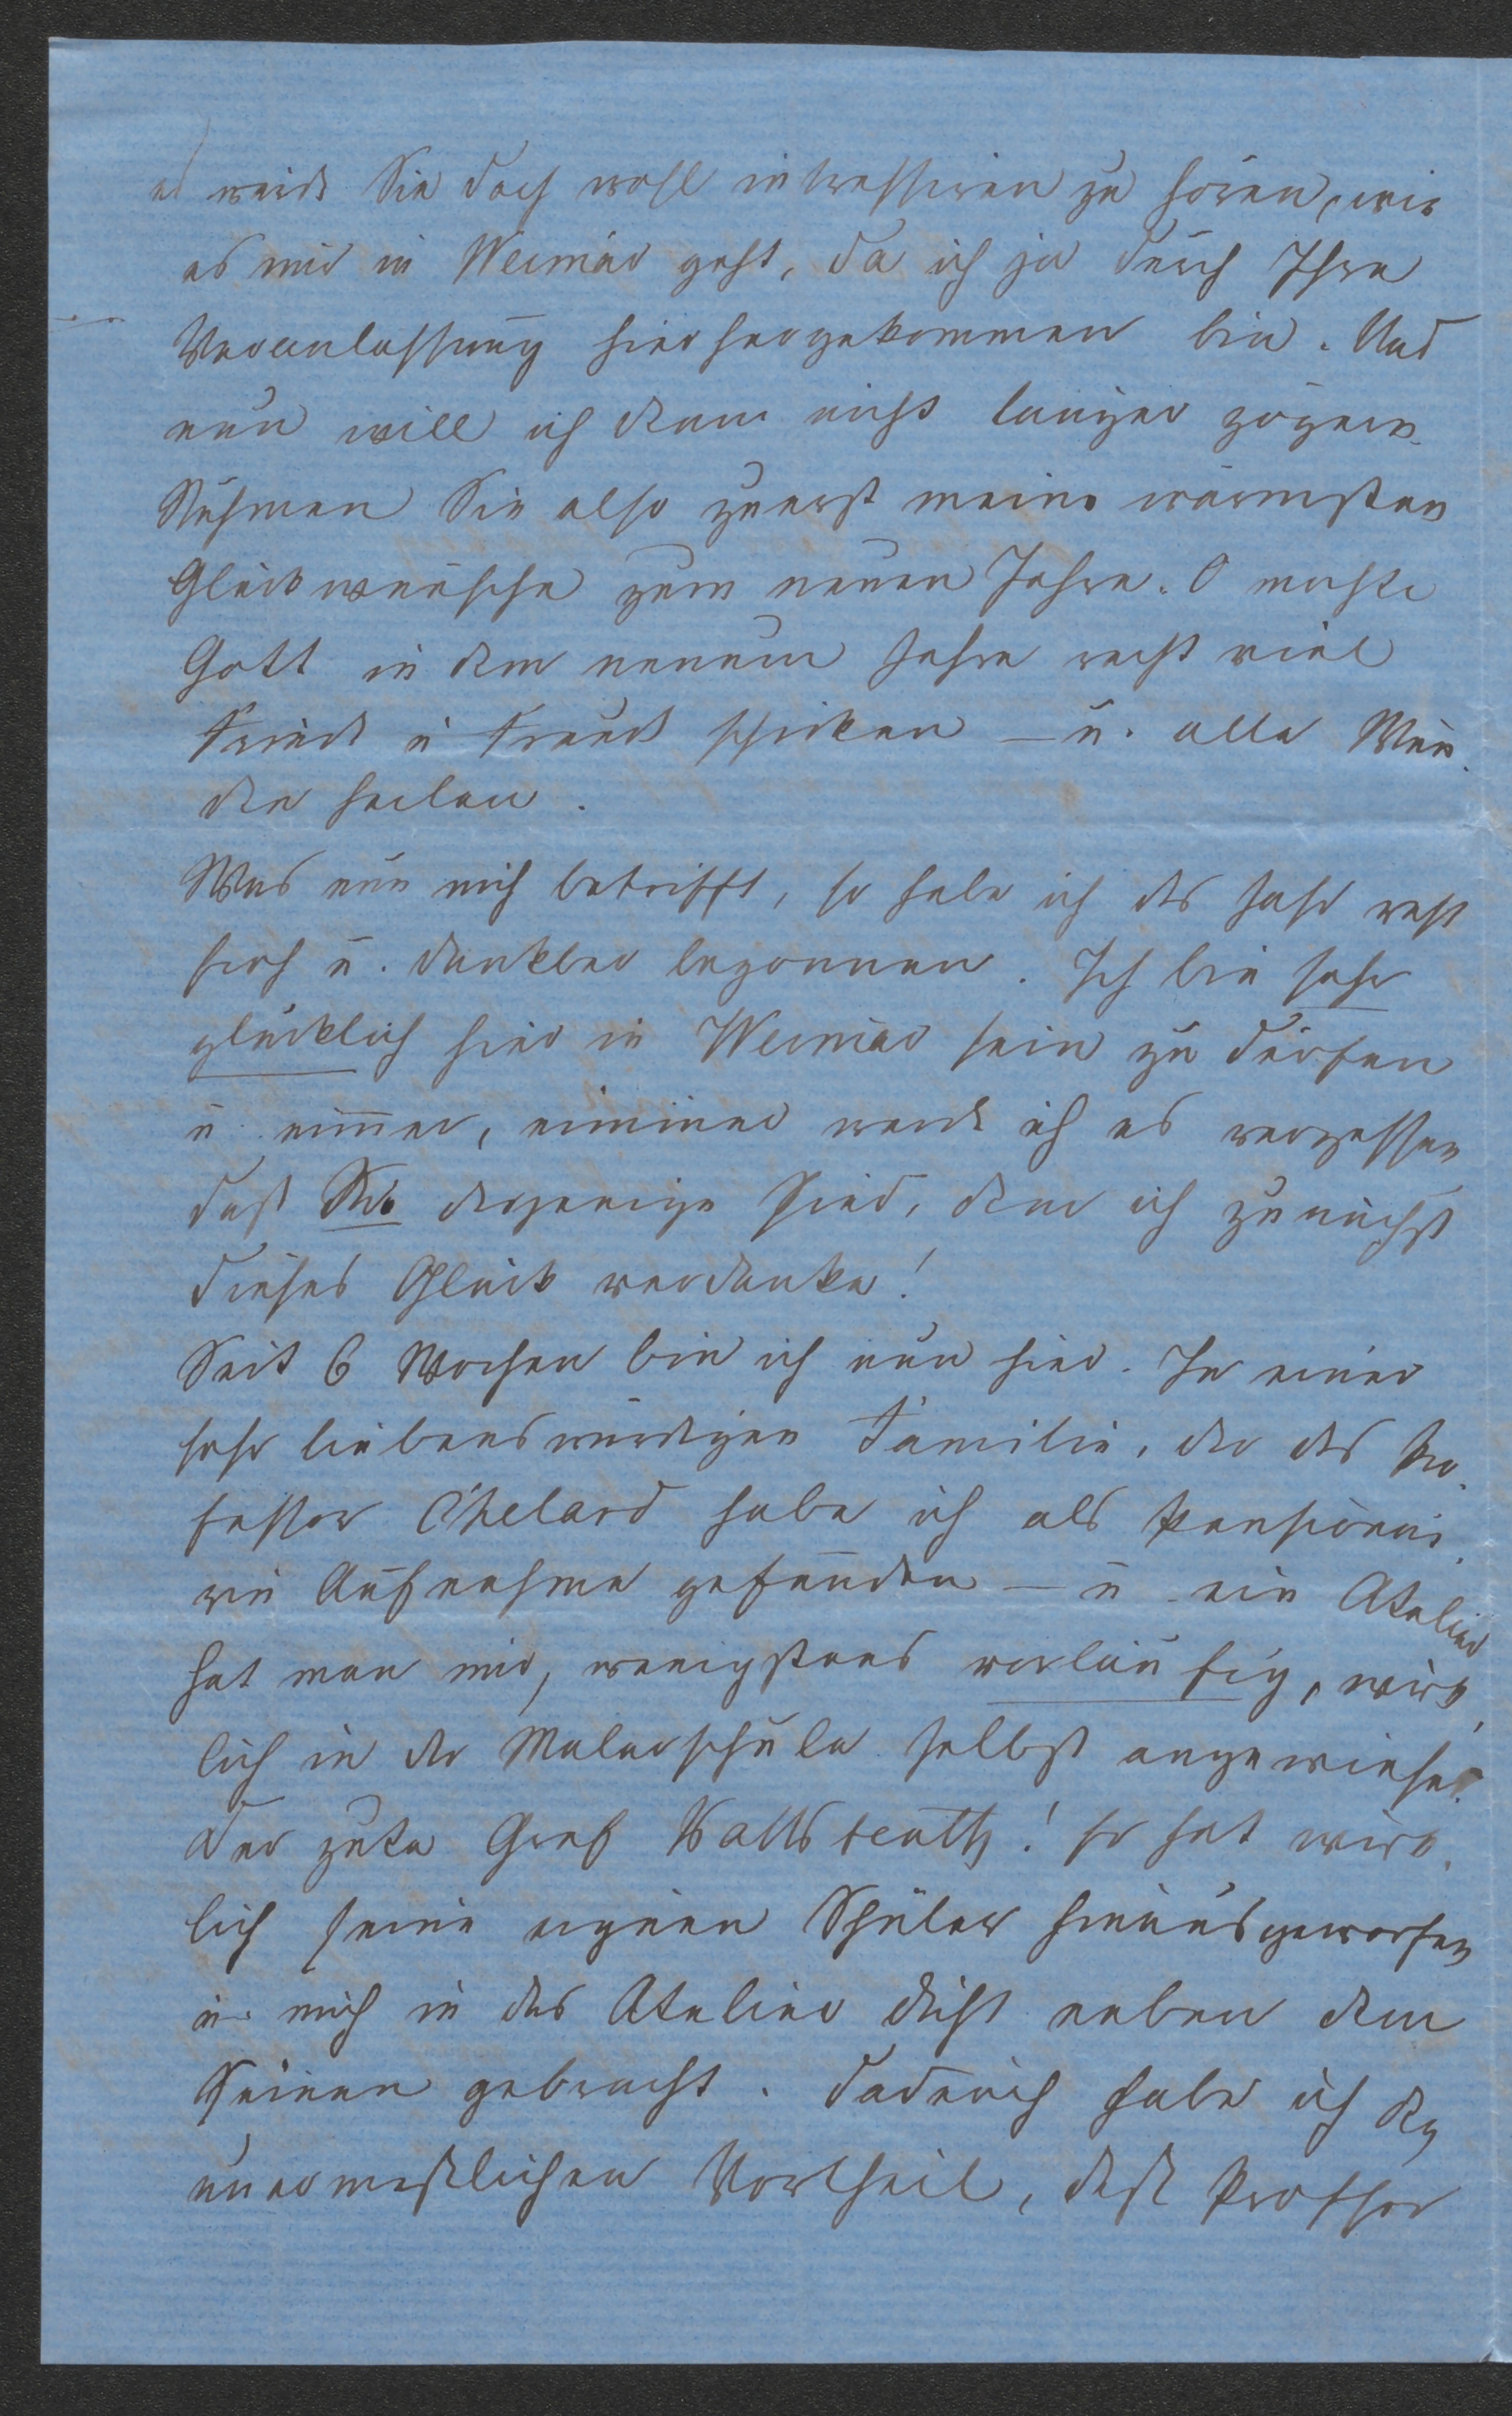 es wird Sie doch wohl intressiren zu hören, wie
es mir in Weimar geht, da ich ja durch Ihre
Veranlassung hierhergekommen bin. Und
nun will ich denn nicht länger zögern.
Nehmen Sie also zuerst meine wärmsten
Glückwünsche zum neuen Jahre. O möchte
Gott in dem neuem Jahre recht viel
Friede u Freude schicken – u. alle Wun-
den heilen.
Was nun mich betrifft, so habe ich das Jahr recht
froh u. dankbar begonnen. Ich bin sehr
glücklich hier in Weimar sein zu dürfen
u. nimmer, nimmer werde ich es vergessen
daß Sie derjenige sind, dem ich zunächst
dieses Glück verdanke!
Seit 6 Wochen bin ich nun hier. In einer
sehr liebenswürdigen Familie, der des Pro-
fessor Chelard habe ich als Pensionai-
rin Aufnahme gefunden – u ein Atelier
hat man mir, wenigstens vorläufig, wirk-
lich in der Malerschule selbst angewiesen.
Der gute Graf Kalkreuth! Er hat wirk-
lich seine eignen Schüler hinausgeworfen
u. mich in das Atelier dicht neben dem
Seinen gebracht. Dadurch habe ich den
unermeßlichen Vortheil, daß Professor